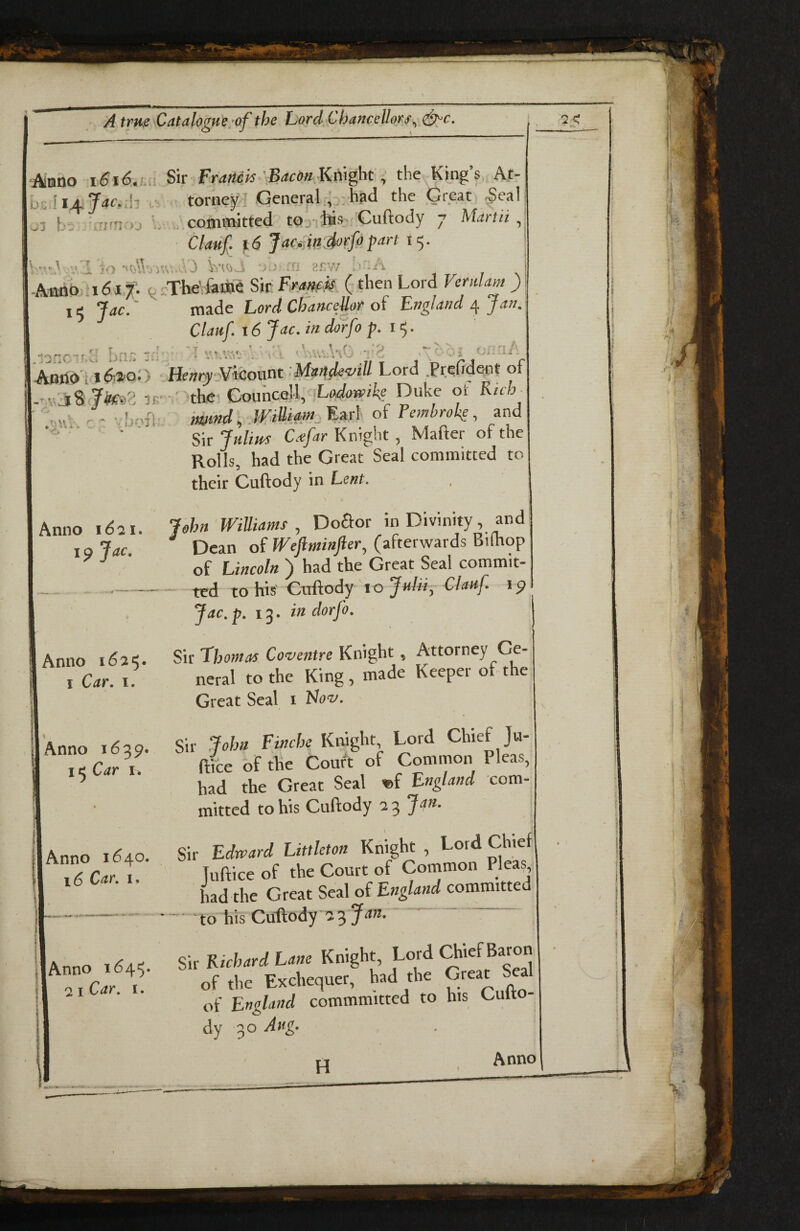 A true Catalogue of the Lord Chancellors, &c. 25
Anno 1616. Sir Francis Bacon Knight, the King's At-
14 Jac. torney General, had the Great Seal
committed to his Cuſtody 7 Martii,
Clauſ. 16 Jac. in dorſo part 15.
Anno 1617. The ſame Sir Francis (then Lord Verulam)
15 Jac. made Lord Chancellor of England 4 Jan.
Clauſ. 16 Jac. in dorſo p. 15.
Anno 1620. Henry Vicount Mandevill Lord Preſident of
18 Jac. the Councell, Lodowike Duke of Rich
mund, William Earl of Pembroke, and
Sir Julius Cæſar Knight, Maſter of the
Rolls, had the Great Seal committed to
their Cuſtody in Lent.
Anno 1621. John Williams, Doctor in Divinity, and
19 Jac. Dean of Weſtminſter, (afterwards Biſhop
of Lincoln) had the Great Seal commit-
ted to his Cuſtody 10 Julii, Clauſ. 19
Jac. p. 13. in dorſo.
Anno 1625. Sir Thomas Coventre Knight, Attorney Ge-
1 Car. 1. neral to the King, made Keeper of the
Great Seal 1 Nov.
Anno 1639. Sir John Finche Knight, Lord Chief Ju-
15 Car 1. ſtice of the Court of Common Pleas,
had the Great Seal of England com-
mitted to his Cuſtody 23 Jan.
Anno 1640. Sir Edward Littleton Knight, Lord Chief
16 Car. 1. Juſtice of the Court of Common Pleas,
had the Great Seal of England committed
to his Cuſtody 23 Jan.
Anno 1645. Sir Richard Lane Knight, Lord Chief Baron
21 Car. 1. of the Exchequer, had the Great Seal
of England commmitted to his Cuſto-
dy 30 Aug.
H Anno